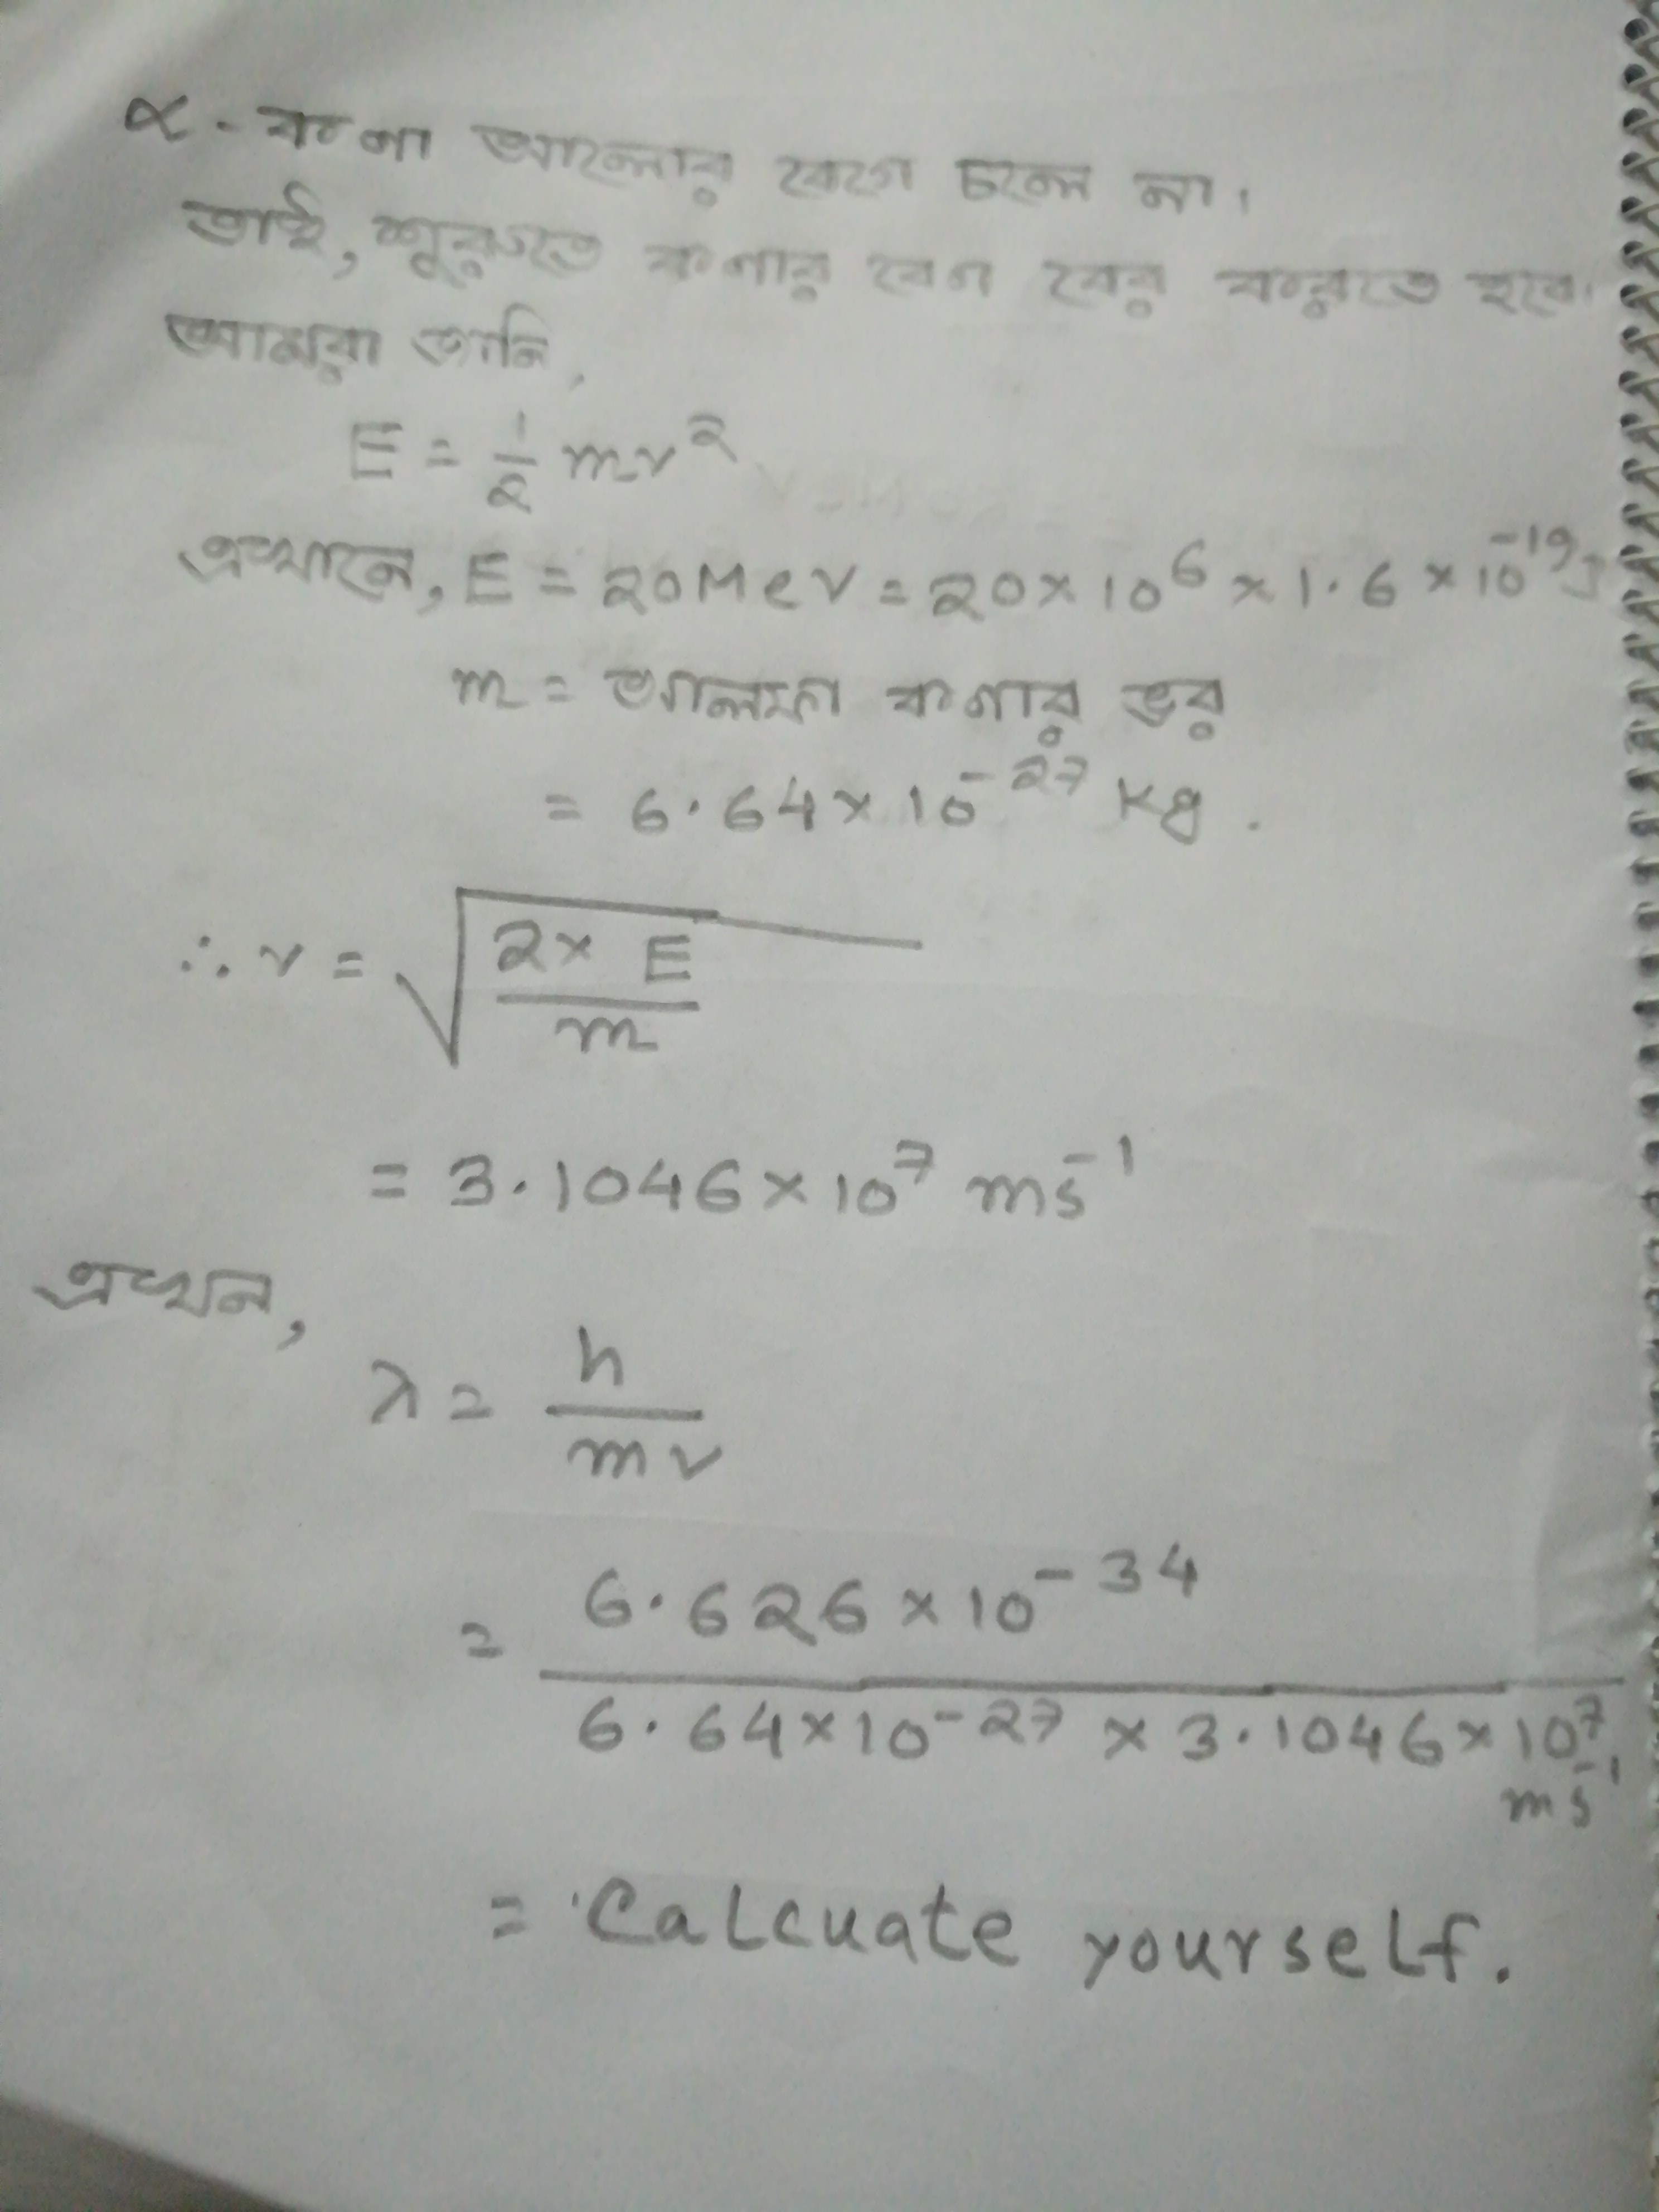 α - কণা আলোর বেগে চলে না।
তাই, শুরুতে কণার বেগ বের করতে হবে।
আমরা জানি,
E = 1/2 mv²
এখানে, E = 20MeV = 20×10⁶×1.6×10⁻¹⁹J
m = আলফা কণার ভর
= 6.64×10⁻²⁷ Kg.
∴ v = √(2× E / m)
= 3.1046×10⁷ ms⁻¹
এখন,
λ = h / mv
= 6.626×10⁻³⁴ / 6.64×10⁻²⁷ × 3.1046×10⁷ ms⁻¹
= Calcuate yourself.